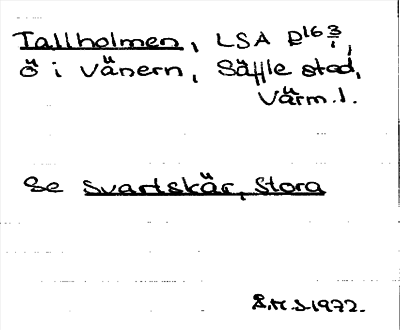 Tallholmen, LSA D16 3/1,
ö i Vänern, Säffle stad,
Värm.l.
Se Svartskär, Stora
S.H.S. 1972.